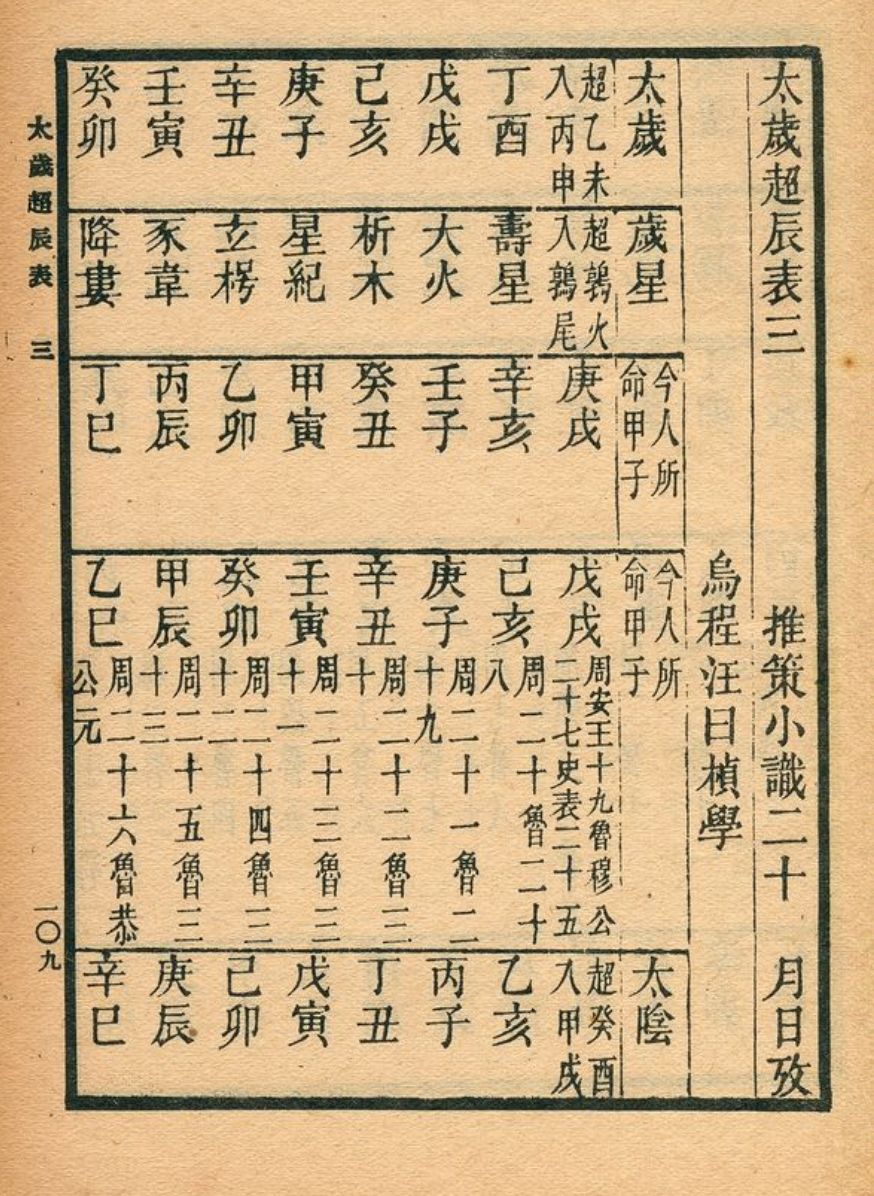 太歲超辰表三 推策小識二十 月日攷
烏程汪曰楨學
太歲 歲星 今人所命甲子 今人所命甲子 太陰
超乙未入丙申 超鶉火入鶉尾 庚戌 戊戌 周安王十九魯穆公二十七史表二十五 超癸酉入甲戌
丁酉 壽星 辛亥 己亥 周二十魯二十八 乙亥
戊戌 大火 壬子 庚子 周二十一魯二十九 丙子
己亥 析木 癸丑 辛丑 周二十二魯三十 丁丑
庚子 星紀 甲寅 壬寅 周二十三魯三十一 戊寅
辛丑 玄枵 乙卯 癸卯 周二十四魯三十二 己卯
壬寅 豕韋 丙辰 甲辰 周二十五魯三十三 庚辰
癸卯 降婁 丁巳 乙巳 周二十六魯恭公元 辛巳
太歲超辰表 三
一〇九